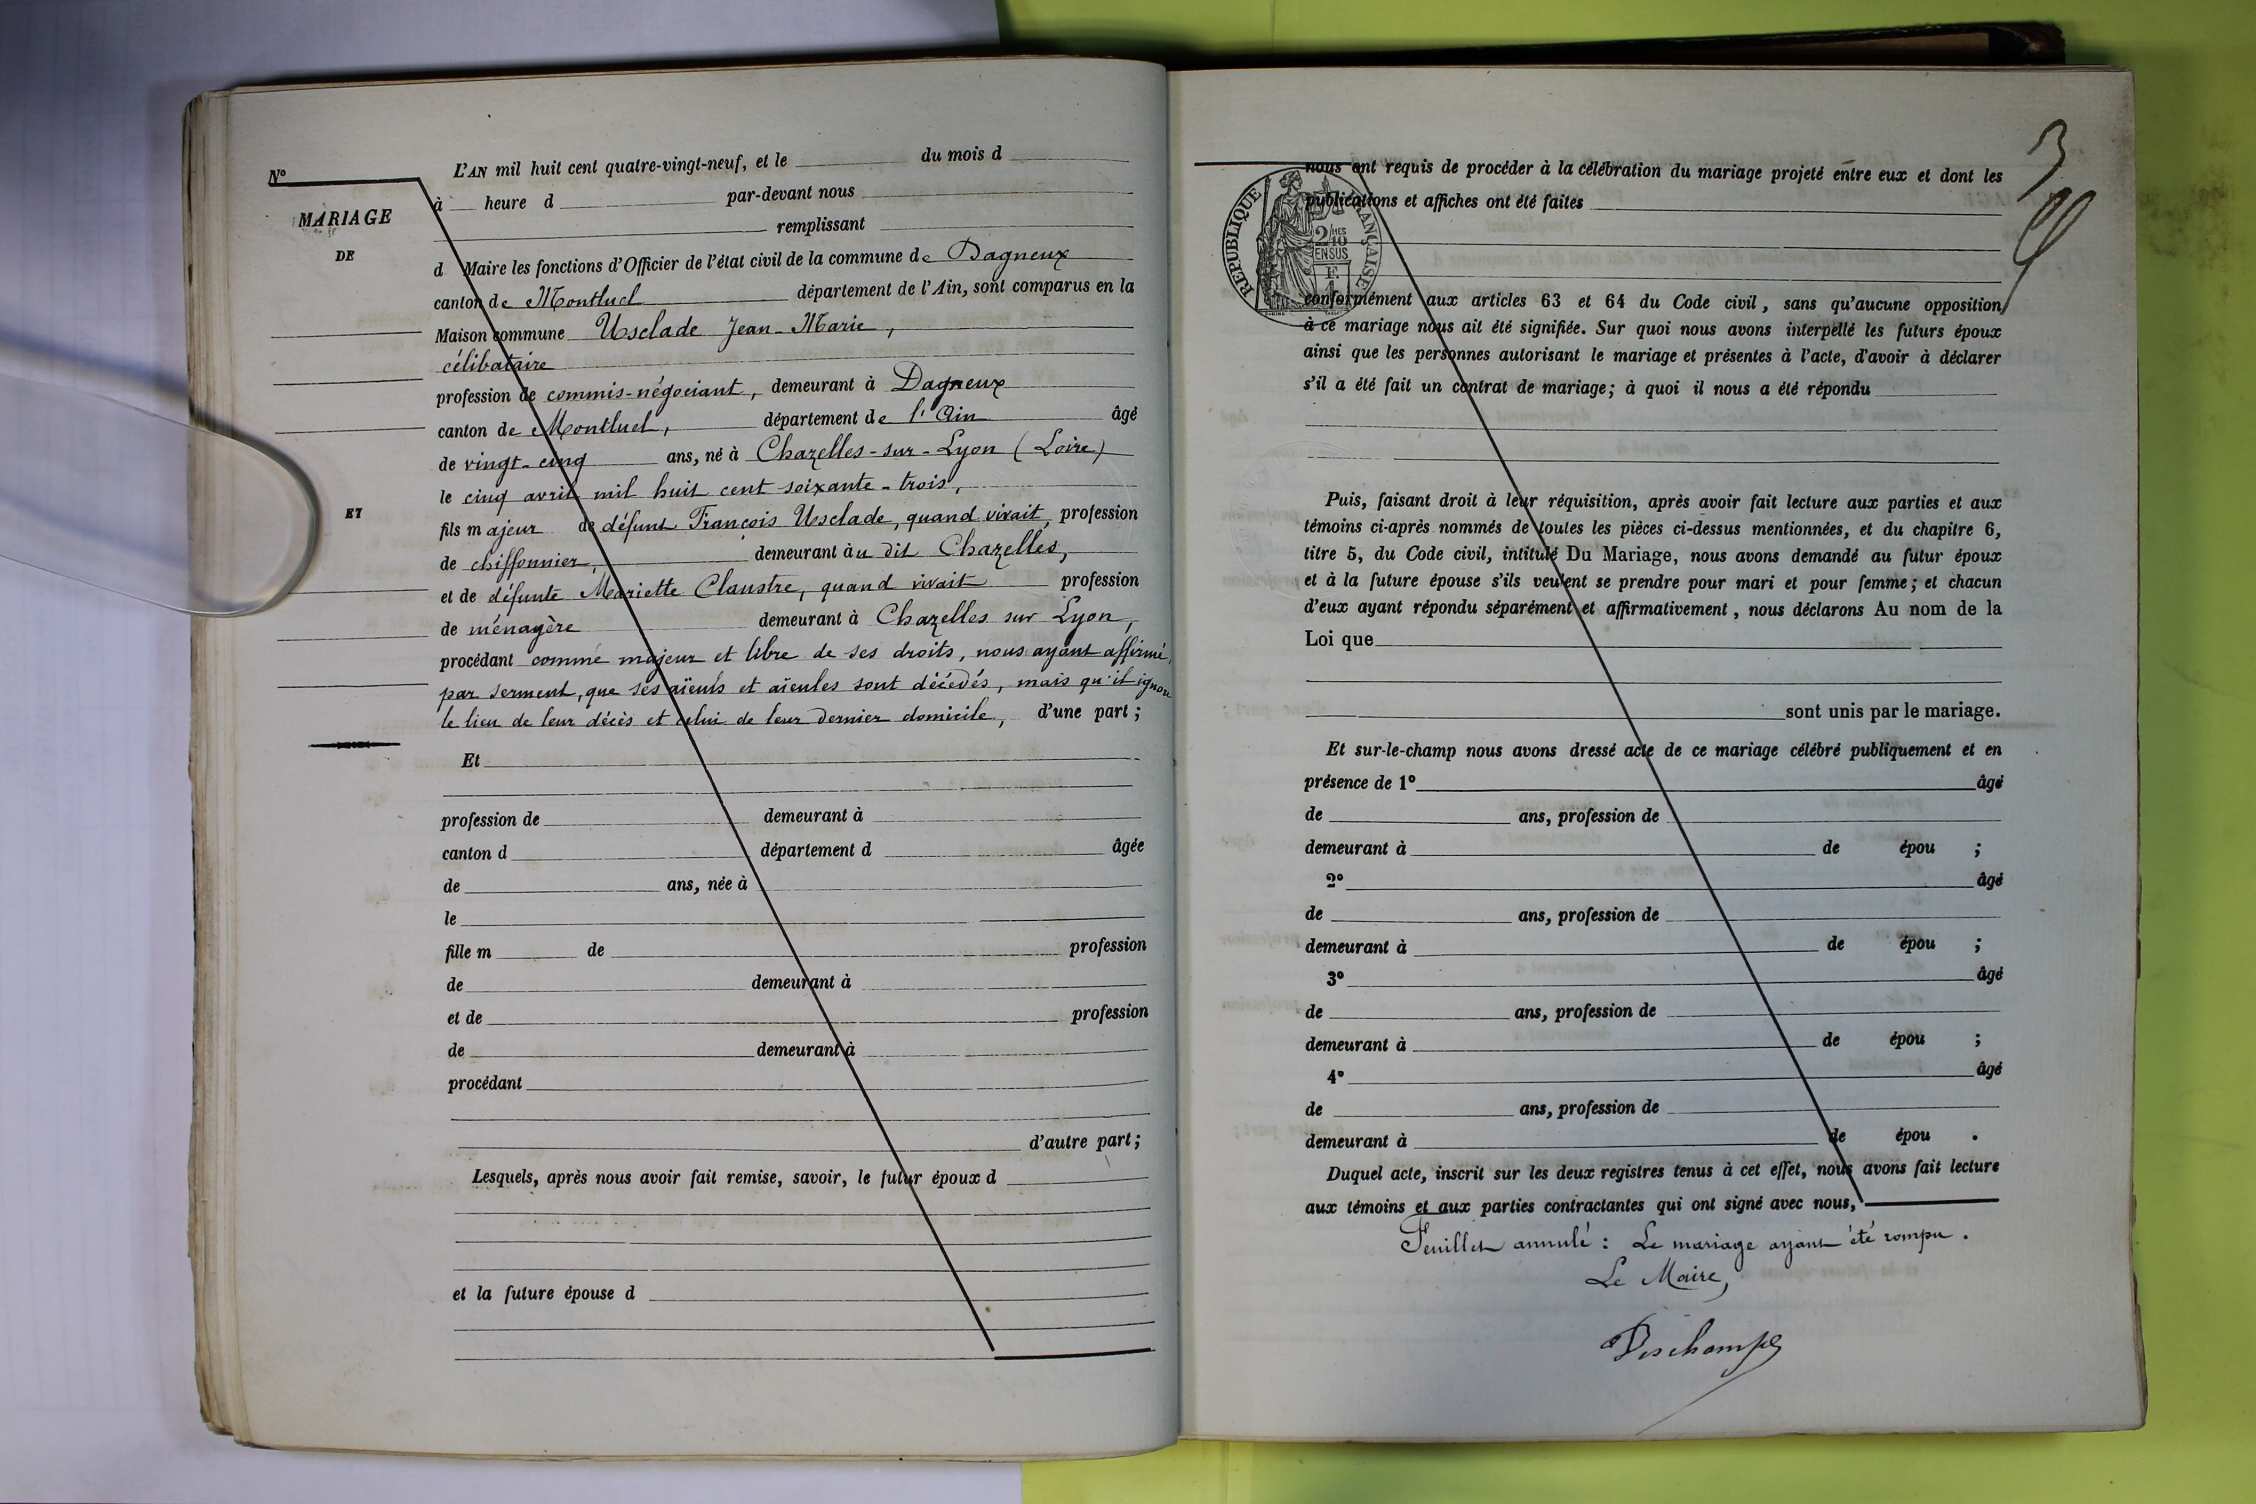 N°
MARIAGE
DE
ET
L'AN mil huit cent quatre-vingt-neuf, et le du mois d
à heure d par-devant nous
remplissant
d Maire les fonctions d'Officier de l'état civil de la commune de Dagneux
canton de Montluel département de l'Ain, sont comparus en la
Maison commune Usclade Jean-Marie,
célibataire
profession de commis-négociant, demeurant à Dagneux
canton de Montluel, département de l'Ain âgé
de vingt-cinq ans, né à Chazelles-sur-Lyon (Loire)
le cinq avril mil huit cent soixante-trois,
fils majeur de défunt François Usclade, quand vivait, profession
de chiffonnier, demeurant àu dit Chazelles,
et de défunte Mariette Claustre, quand vivait profession
de ménagère demeurant à Chazelles sur Lyon,
procédant comme majeur et libre de ses droits, nous ayant affirmé,
par serment, que ses aïeuls et aïeules sont décédés, mais qu'il ignore
le lieu de leur décès et celui de leur dernier domicile, d'une part;
Et
profession de demeurant à
canton d département d âgée
de ans, née à
le
fille m de profession
de demeurant à
et de profession
de demeurant à
procédant
d'autre part;
Lesquels, après nous avoir fait remise, savoir, le futur époux d
et la future épouse d
3
nous ont requis de procéder à la célébration du mariage projeté entre eux et dont les
publications et affiches ont été faites
RÉPUBLIQUE FRANÇAISE
2/10 MES
EN SUS
F.
1
conformément aux articles 63 et 64 du Code civil, sans qu'aucune opposition
à ce mariage nous ait été signifiée. Sur quoi nous avons interpellé les futurs époux
ainsi que les personnes autorisant le mariage et présentes à l'acte, d'avoir à déclarer
s'il a été fait un contrat de mariage; à quoi il nous a été répondu
Puis, faisant droit à leur réquisition, après avoir fait lecture aux parties et aux
témoins ci-après nommés de toutes les pièces ci-dessus mentionnées, et du chapitre 6,
titre 5, du Code civil, intitulé Du Mariage, nous avons demandé au futur époux
et à la future épouse s'ils veulent se prendre pour mari et pour femme; et chacun
d'eux ayant répondu séparément et affirmativement, nous déclarons Au nom de la
Loi que
sont unis par le mariage.
Et sur-le-champ nous avons dressé acte de ce mariage célébré publiquement et en
présence de 1° âgé
de ans, profession de
demeurant à de épou ;
2° âgé
de ans, profession de
demeurant à de épou ;
3° âgé
de ans, profession de
demeurant à de épou ;
4° âgé
de ans, profession de
demeurant à de épou .
Duquel acte, inscrit sur les deux registres tenus à cet effet, nous avons fait lecture
aux témoins et aux parties contractantes qui ont signé avec nous,
Feuillet annulé : Le mariage ayant été rompu.
Le Maire,
Deschamps